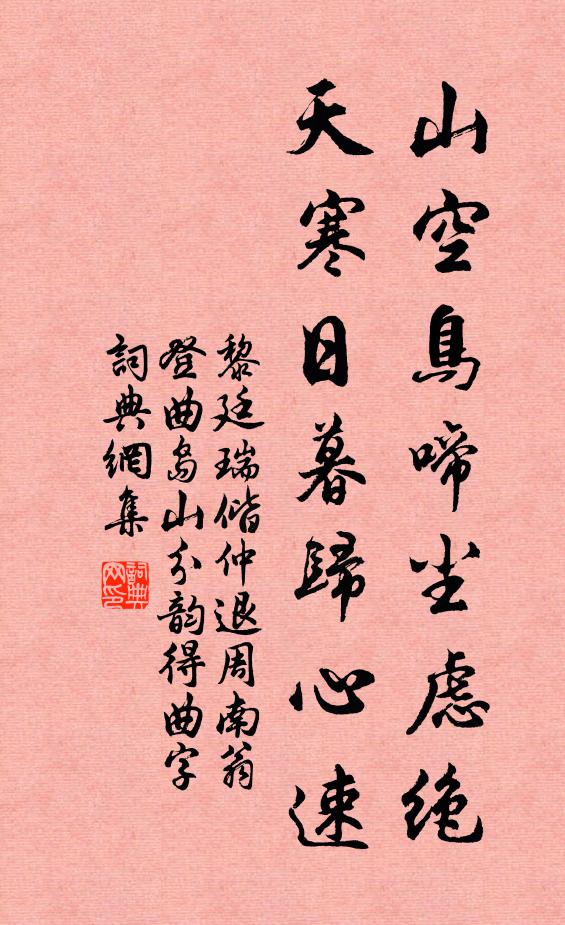 山空鳥啼尘慮絶
天寒日暮歸心速
黎廷瑞偕仲退周南翁
登曲岛山分韵得曲字
詞典網集
詞典
网印